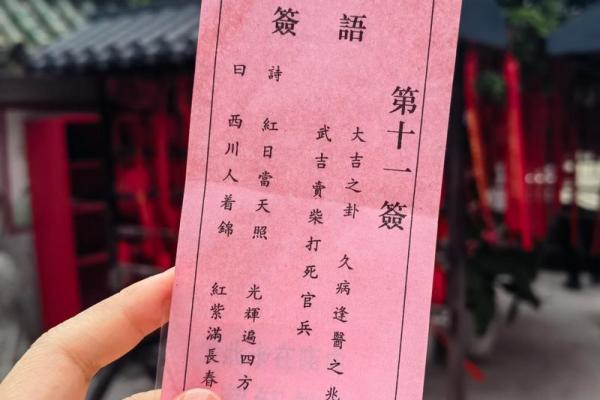 簽語
第十一簽
大吉之卦 久病逢醫之兆
武吉賣柴打死官兵
詩 紅日當天照 光輝遍四方
曰 西川人着錦 紅紫滿長春